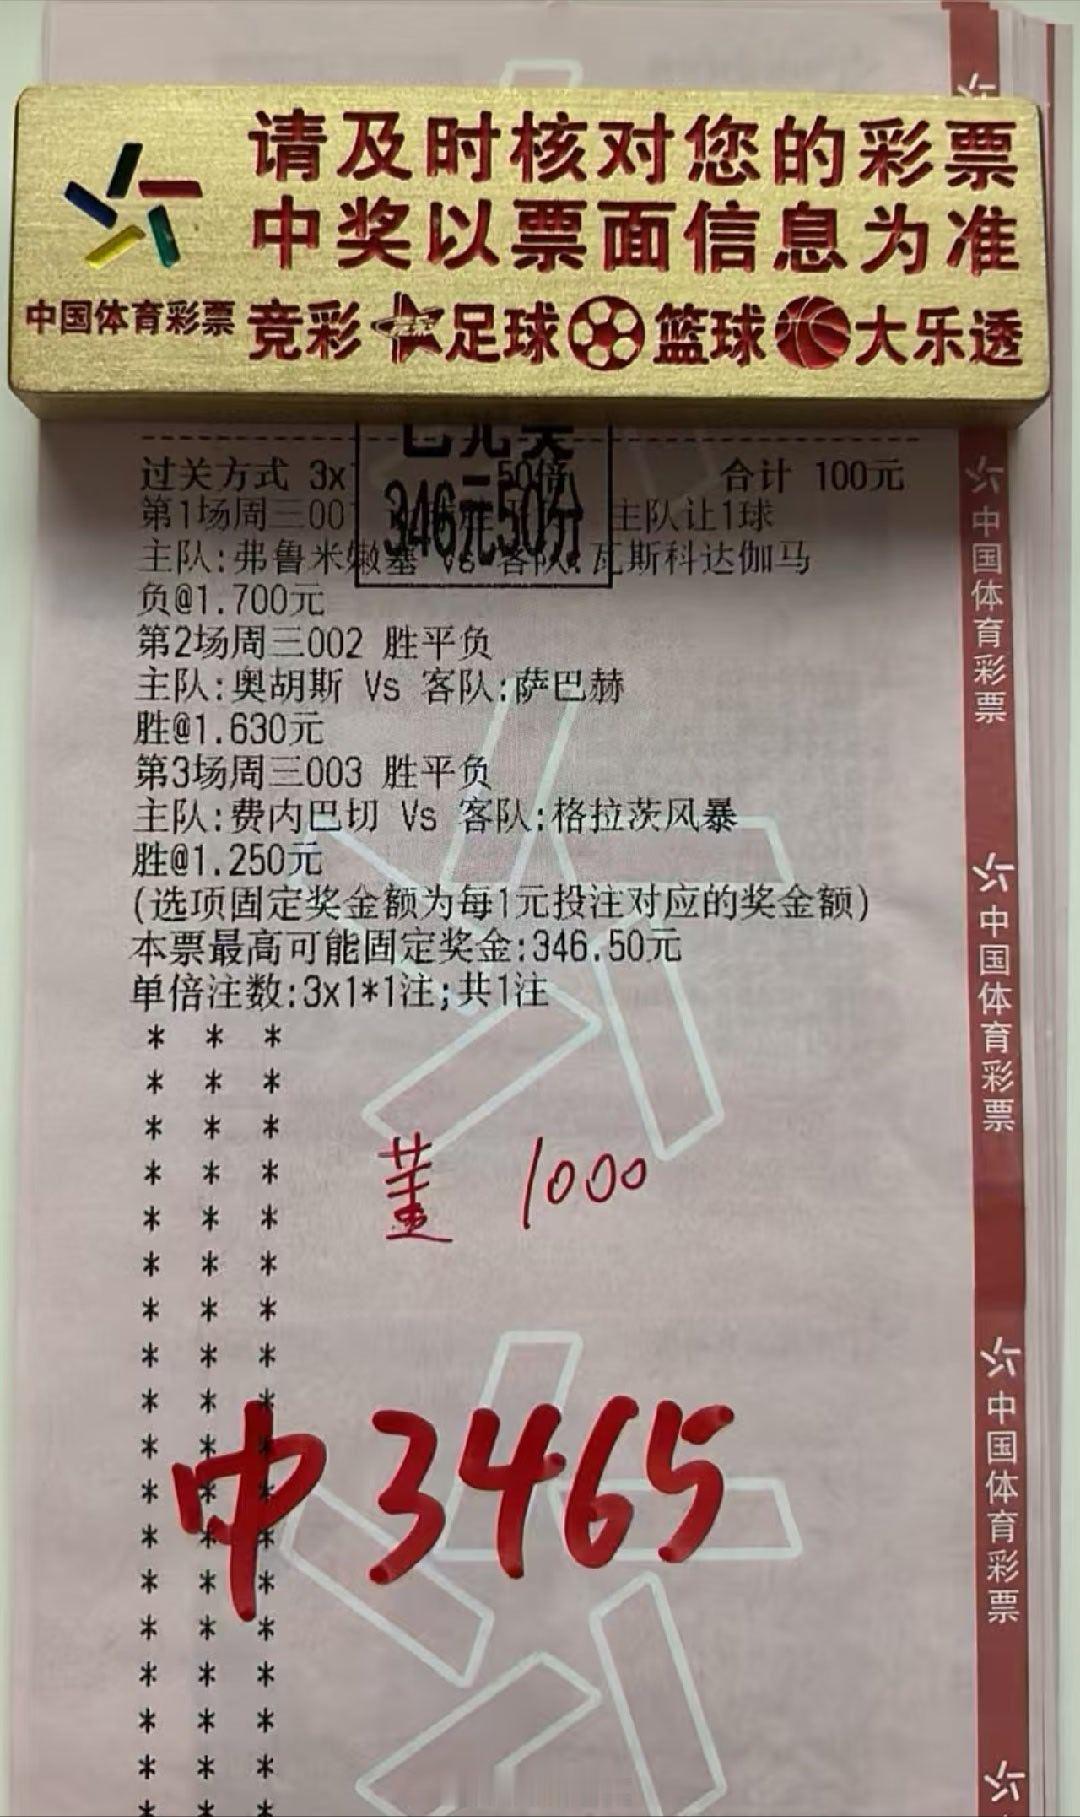 请及时核对您的彩票
中奖以票面信息为准
中国体育彩票 竞彩 足球 篮球 大乐透
346元50分
过关方式 3x 50倍 合计 100元
第1场周三001 主队让1球
主队:弗鲁米嫩塞 Vs 客队:瓦斯科达伽马
负@1.700元
第2场周三002 胜平负
主队:奥胡斯 Vs 客队:萨巴赫
胜@1.630元
第3场周三003 胜平负
主队:费内巴切 Vs 客队:格拉茨风暴
胜@1.250元
(选项固定奖金额为每1元投注对应的奖金额)
本票最高可能固定奖金:346.50元
单倍注数:3x1*1注;共1注
* * *
* * *
* * *
* * *
* * *
* * *
* * *
* * *
* * *
* * *
* * *
* * *
* * *
* * *
* * *
* * *
* * *
* * *
1000
中3465
中国体育彩票
中国体育彩票
中国体育彩票